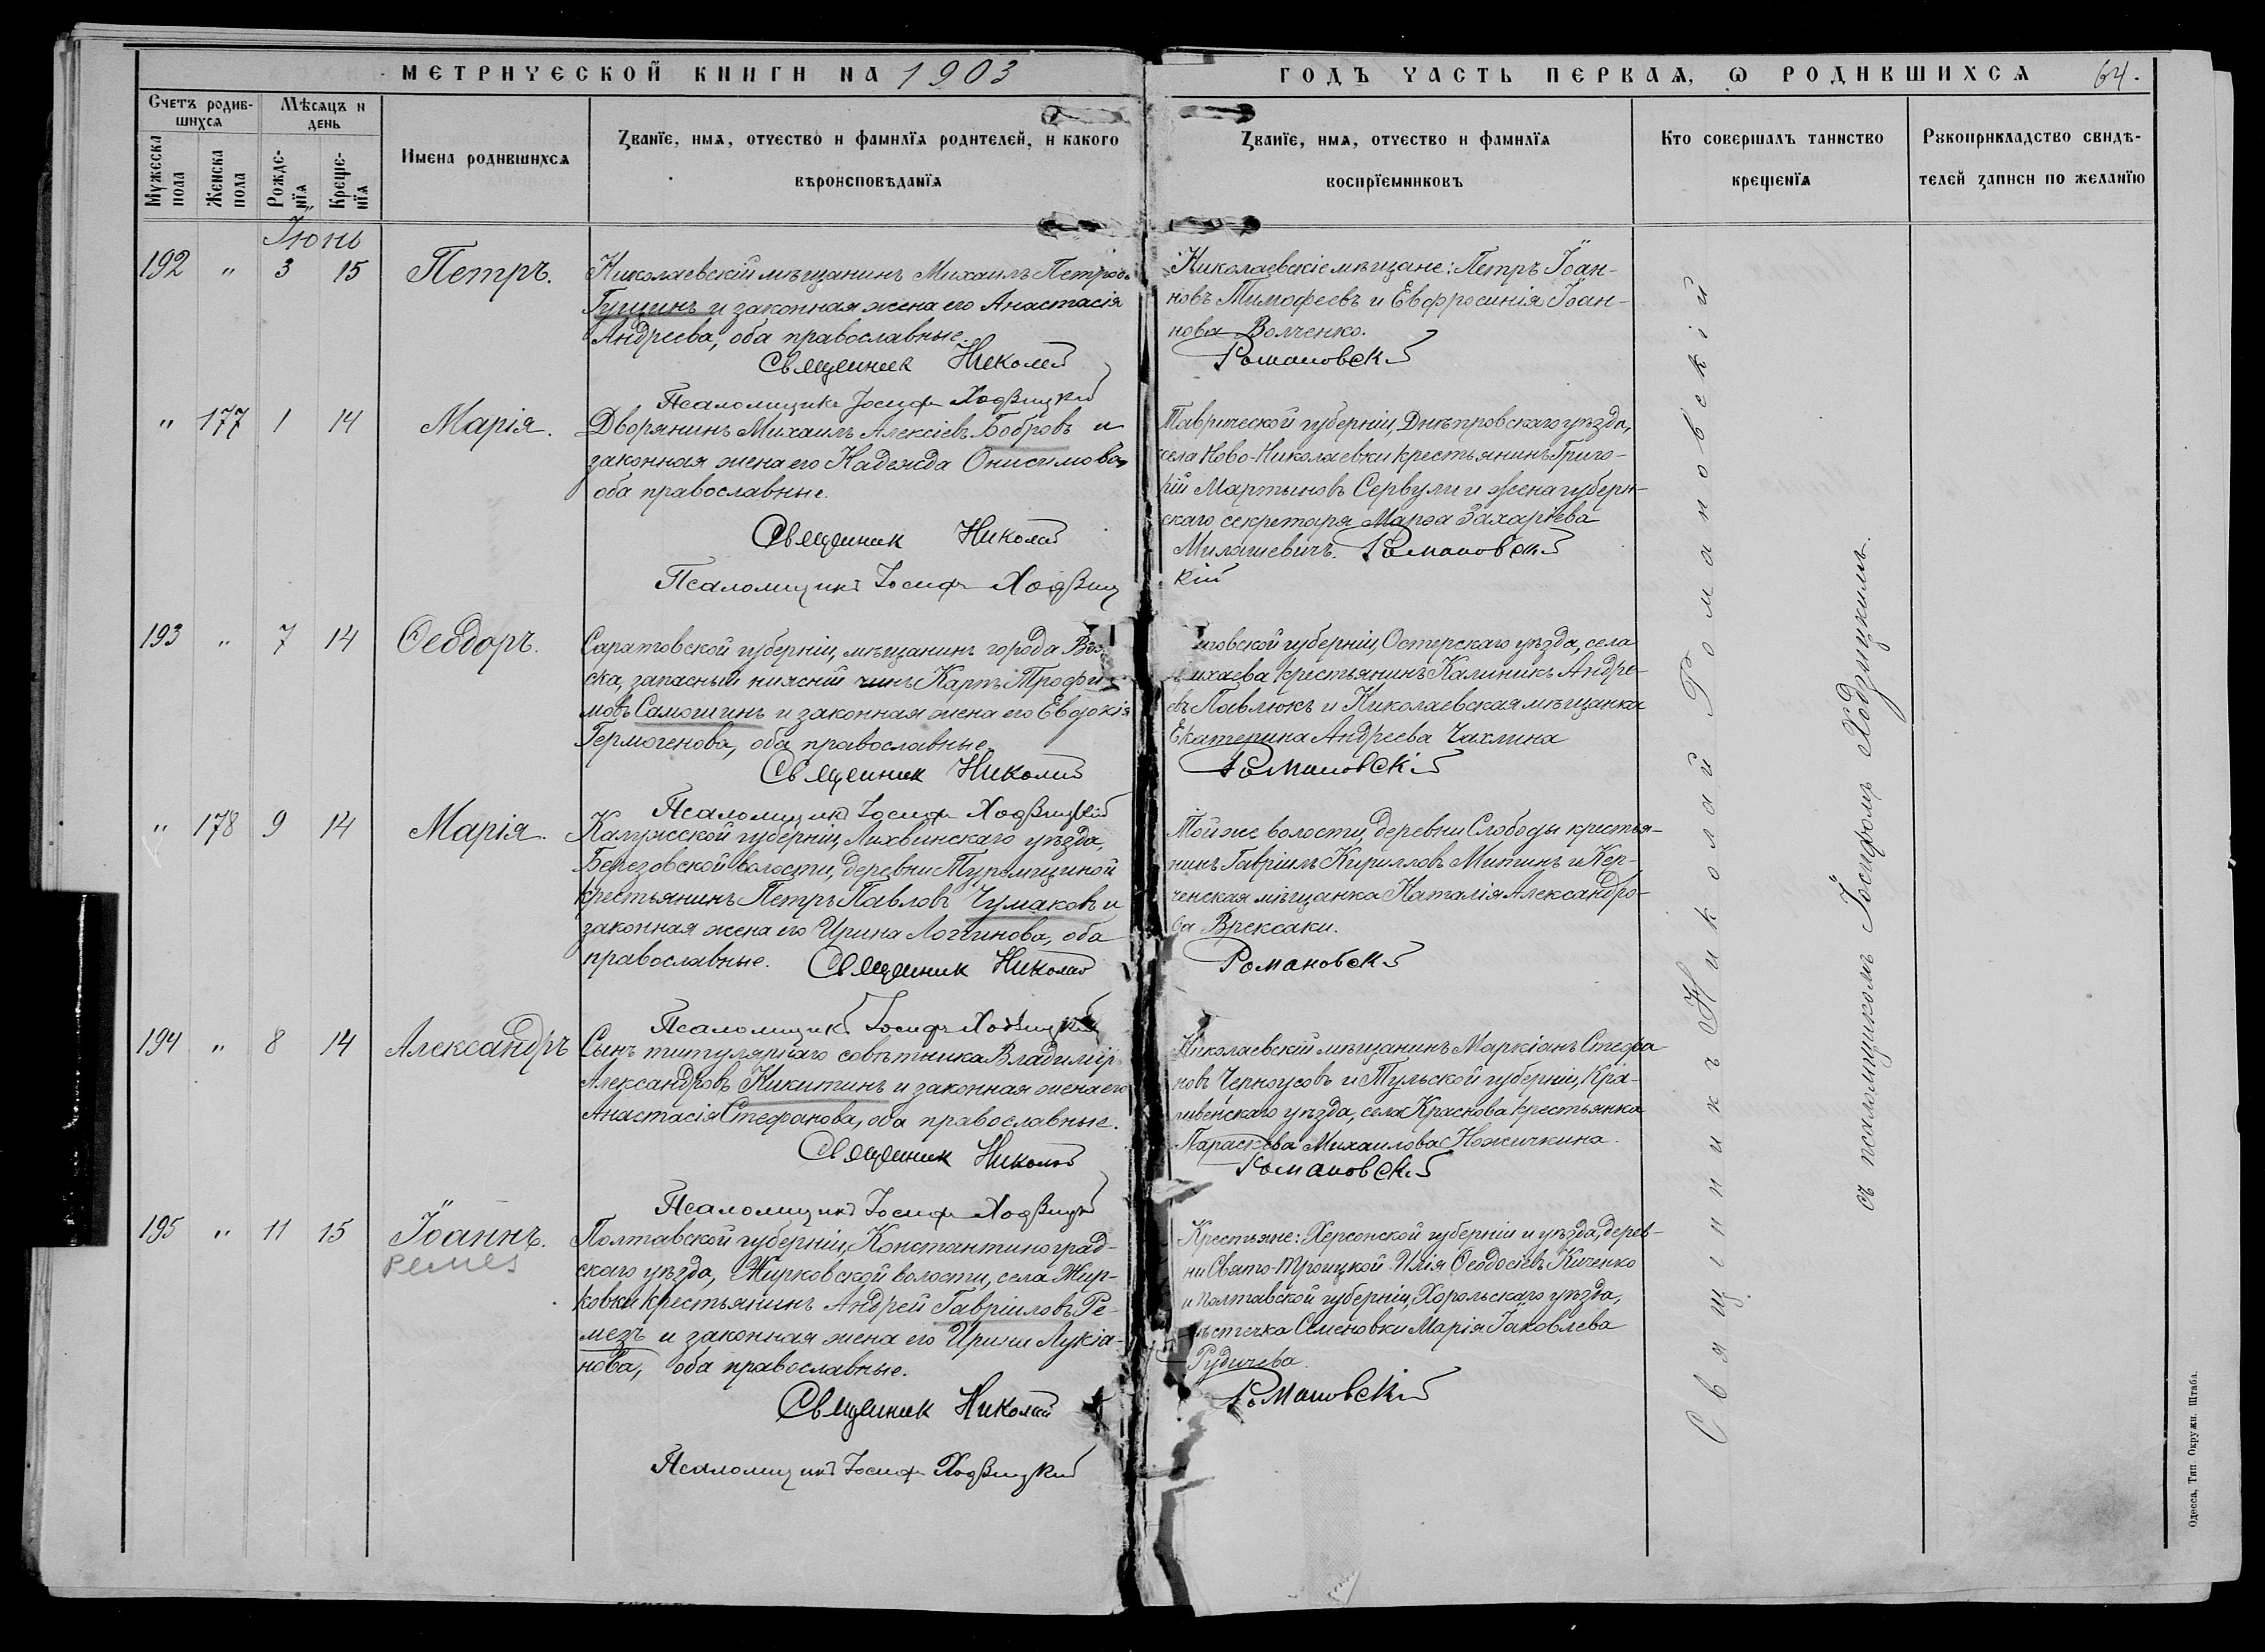 МЕТРИЧЕСКОЙ КНИГИ НА 1903
ГОДЪ ЧАСТЬ ПЕРВАЯ, Ѡ РОДИВШИХСЯ 64.
Счетъ родив-
шихся
Мѣсяцъ и
день
Мужеска
пола
Женска
пола
Рожде-
нїя
Креще-
нїя
Имена родившихся
Званїе, имя, отчество и фамилїя родителей, и какого
вѣроисповѣданїя
Званїе, имя, отчество и фамилїя
воспрїемниковъ
Кто совершалъ таинство
крещенїя
Рукоприкладство свидѣ-
телей записи по желанїю
Іюнь
192 " 3 15 Петръ.
Николаевскій мѣщанинъ Михаилъ Петровъ
Гущинъ и законная жена его Анастасія
Андреева, оба православные.
Священник Николай
Псаломщикъ Іосифъ Ходзицкій
Николаевскіе мѣщане: Петръ Іоан-
новъ Тимофеевъ и Евфросинія Іоан-
нова Волченко.
Романовскій
" 177 1 14 Марія.
Дворянинъ Михаилъ Алексіевъ Бобровъ и
законная жена его Надежда Онисимова,
оба православные.
Священник Николай
Псаломщикъ Іосифъ Ходзиц
Таврической губерніи, Днѣпровскаго уѣзда,
села Ново-Николаевки крестьянинъ Григо-
рій Мартыновъ Сервули и жена губерн-
скаго секретаря Марѳа Захаріева
Милашевичъ. Романовскій
кій
193 " 7 14 Ѳеодоръ.
Саратовской губерніи, мѣщанинъ города
ска, запасный нижній чинъ Карпъ Трофи-
мовъ Самошинъ и законная жена его Евдокія
Гермогенова, оба православные.
Священник Николай
Псаломщикъ Іосифъ Ходзицкій
иговской губерніи, Остерскаго уѣзда, села
крестьянинъ Калиникъ Андре-
евъ Павлюкъ и Николаевская мѣщанка
Екатерина Андреева Чахлина
Романовскій
" 178 9 14 Марія.
Калужской губерніи, Лихвинскаго уѣзда,
Березовской волости, деревни
крестьянинъ Петръ Павловъ Чумаковъ и
законная жена его Ирина Логгинова, оба
православные. Священник Николай
Псаломщикъ Іосифъ Ходзицкій
Той же волости, деревни Слободы крестья-
нинъ Гавріилъ Кирилловъ Митинъ и Кер-
ченская мѣщанка Наталія Александро-
ва Врексаки.
Романовскій
194 " 8 14 Александръ
Сынъ титулярнаго совѣтника Владиміръ
Александровъ Никитинъ и законная жена его
Анастасія Стефанова, оба православные.
Священник Николай
Псаломщикъ Іосифъ Ходзицкій
Николаевскій мѣщанинъ Маркіанъ Стефа-
новъ Черноусовъ и Тульской губерніи, Кра-
пивенскаго уѣзда, села Краснова крестьянка
Параскева Михаилова Ножичкина.
Романовскій
195 " 11 15 Іоаннъ.
Ремез
Полтавской губерніи, Константиноград-
скаго уѣзда, Жирковской волости, села Жир-
ковки крестьянинъ Андрей Гавріиловъ Ре-
мезъ и законная жена его Ирина Лукіа-
нова, оба православные.
Священник Николай
Псаломщикъ Іосифъ Ходзицкій
Крестьяне: Херсонской губерніи и уѣзда, дерев-
ни Свято-Троицкой Илія Ѳеодосіевъ Киченко
и Полтавской губерніи, Хорольскаго уѣзда,
мѣстечка Семеновки Марія Іаковлева
Рудичева.
Романовскій
Священникъ Николай Романовскій
съ псаломщикомъ Іосифомъ Ходзицкимъ.
Одесса, Тип. Окружн. Штаба.